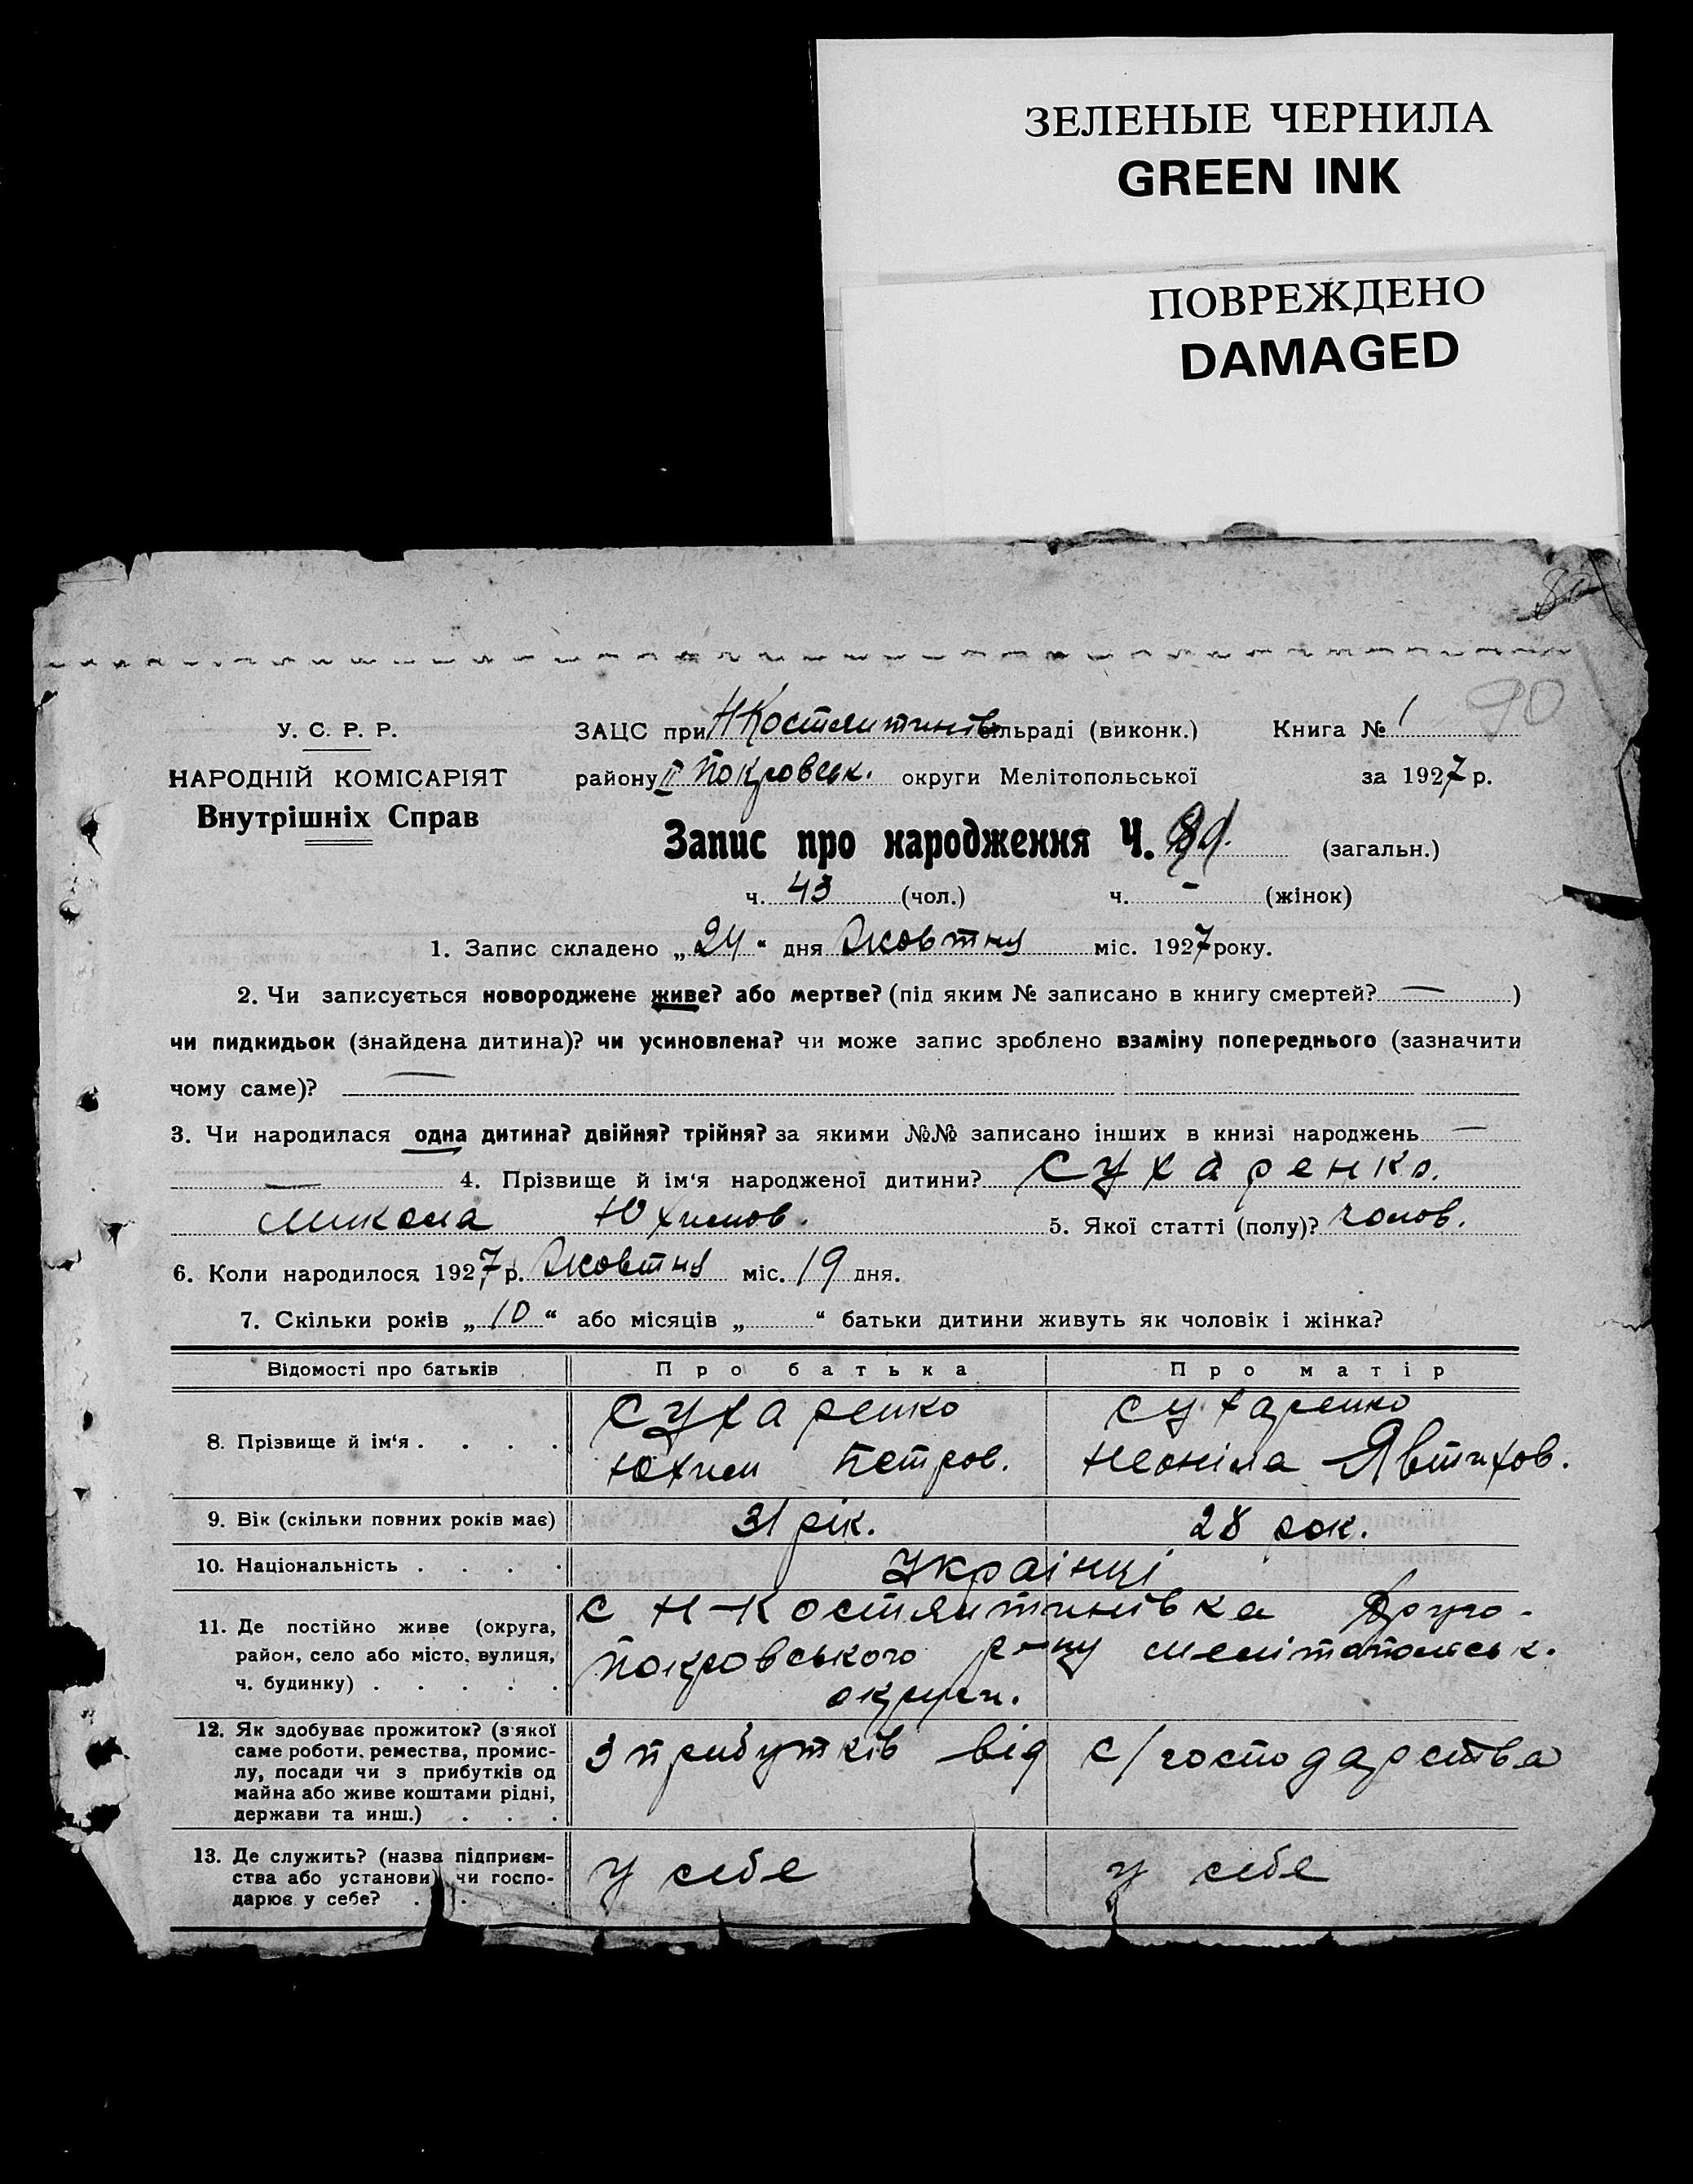 ЗЕЛЕНЫЕ ЧЕРНИЛА
GREEN INK
ПОВРЕЖДЕНО
DAMAGED
90
У. С. Р. Р.
НАРОДНІЙ КОМІСАРІЯТ
Внутрішніх Справ
ЗАЦС при Н Костянтинів сільраді (виконк.) Книга № 1
району ІІ Покровськ. округи Мелітопольської за 1927 р.
Запис про народження Ч. (загальн.)
ч. 43 (чол.) ч. - (жінок)
1. Запис складено „24“ дня Жовтня міс. 1927 року.
2. Чи записується новороджене живе? або мертве? (під яким № записано в книгу смертей? — )
чи пидкидьок (знайдена дитина)? чи усиновлена? чи може запис зроблено взаміну попереднього (зазначити
чому саме)? —
3. Чи народилася одна дитина? двійня? трійня? за якими №№ записано інших в книзі народжень —
— 4. Прізвище й ім‘я народженої дитини? Сухаренко.
Микола Юхимов. 5. Якої статті (полу)? чолов.
6. Коли народилося 1927 р. Жовтня міс. 19 дня.
7. Скільки років „10“ або місяців „ “ батьки дитини живуть як чоловік і жінка?
Відомості про батьків Про батька Про матір
8. Прізвище й ім‘я . . . . Сухаренко Юхим Петров. Сухаренко Неоніла Явтихов.
9. Вік (скільки повних років має) 31 рік. 28 рок.
10. Національність . . . . Українці
11. Де постійно живе (округа, район, село або місто, вулиця, ч. будинку) . . . . . с Н-Костянтинівка Друго-
Покровського р-ну Мелітопольськ.
округи.
12. Як здобуває прожиток? (з якої саме роботи, ремества, промислу, посади чи з прибутків од майна або живе коштами рідні, держави та инш.) . . . З прибутків від с/господарства
13. Де служить? (назва підприємства або установи) чи господарює у себе? . . . у себе у себе